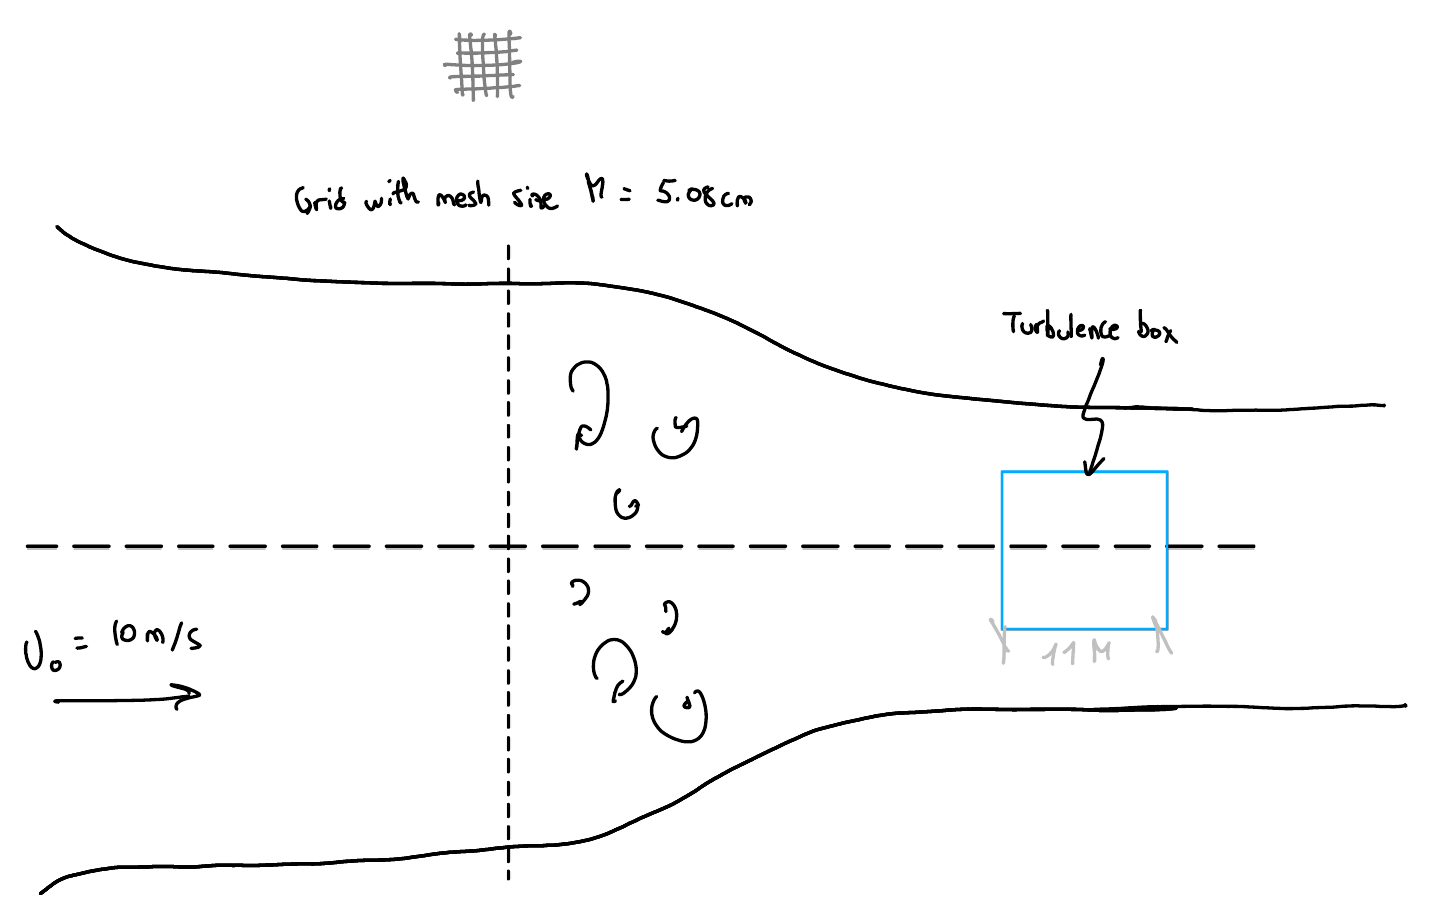 Grid with mesh size M = 5.08cm
Turbulence box
U₀ = 10 m/s
11 M